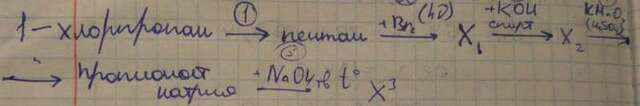 1-хлорпропан ①→ пентан +Br₂ (hν)→ X₁ +KOH спирт→ X₂ KMnO₄ (H₂SO₄)→
→ пропионат натрия +NaOH, t° X³